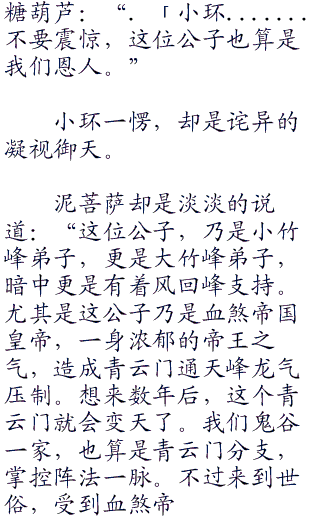 糖葫芦：“．「小环．．．．．．．
不要震惊，这位公子也算是
我们恩人。”
小环一愣，却是诧异的
凝视御天。
泥菩萨却是淡淡的说
道：“这位公子，乃是小竹
峰弟子，更是大竹峰弟子，
暗中更是有着风回峰支持。
尤其是这公子乃是血煞帝国
皇帝，一身浓郁的帝王之
气，造成青云门通天峰龙气
压制。想来数年后，这个青
云门就会变天了。我们鬼谷
一家，也算是青云门分支，
掌控阵法一脉。不过来到世
俗，受到血煞帝